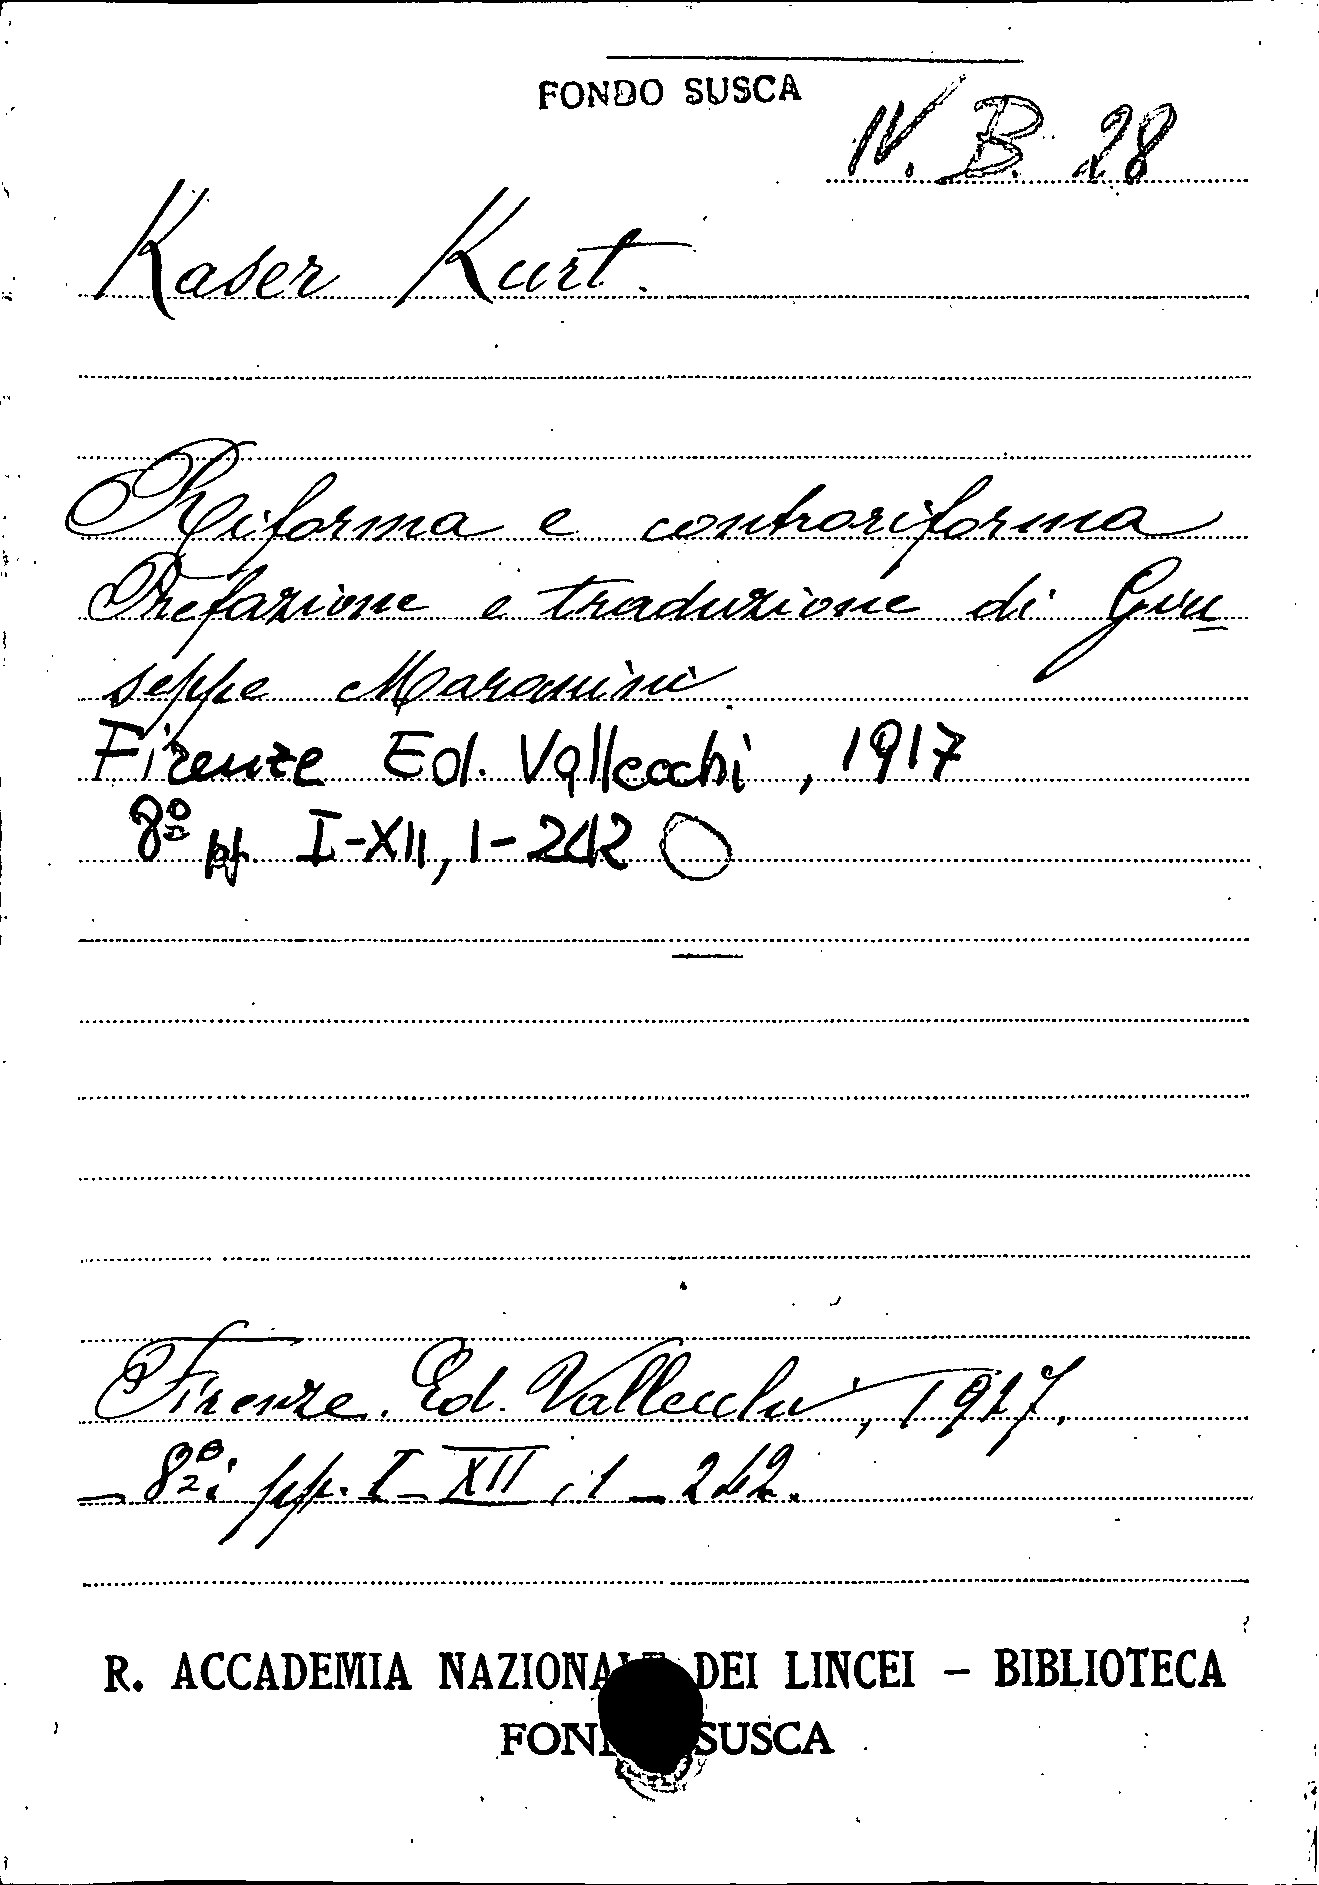 FONDO SUSCA
IV. B. 28
Kaser Kurt.
Riforma e controriforma
Prefazione e traduzione di Giu
seppe Maranini
Firenze Ed. Vallecchi, 1917
8º pp. I-XII, 1-242
Firenze. Ed. Vallecchi, 1927.
- 8º; pp. I-XII, 1-242.
R. ACCADEMIA NAZIONALE DEI LINCEI - BIBLIOTECA
FONDO SUSCA